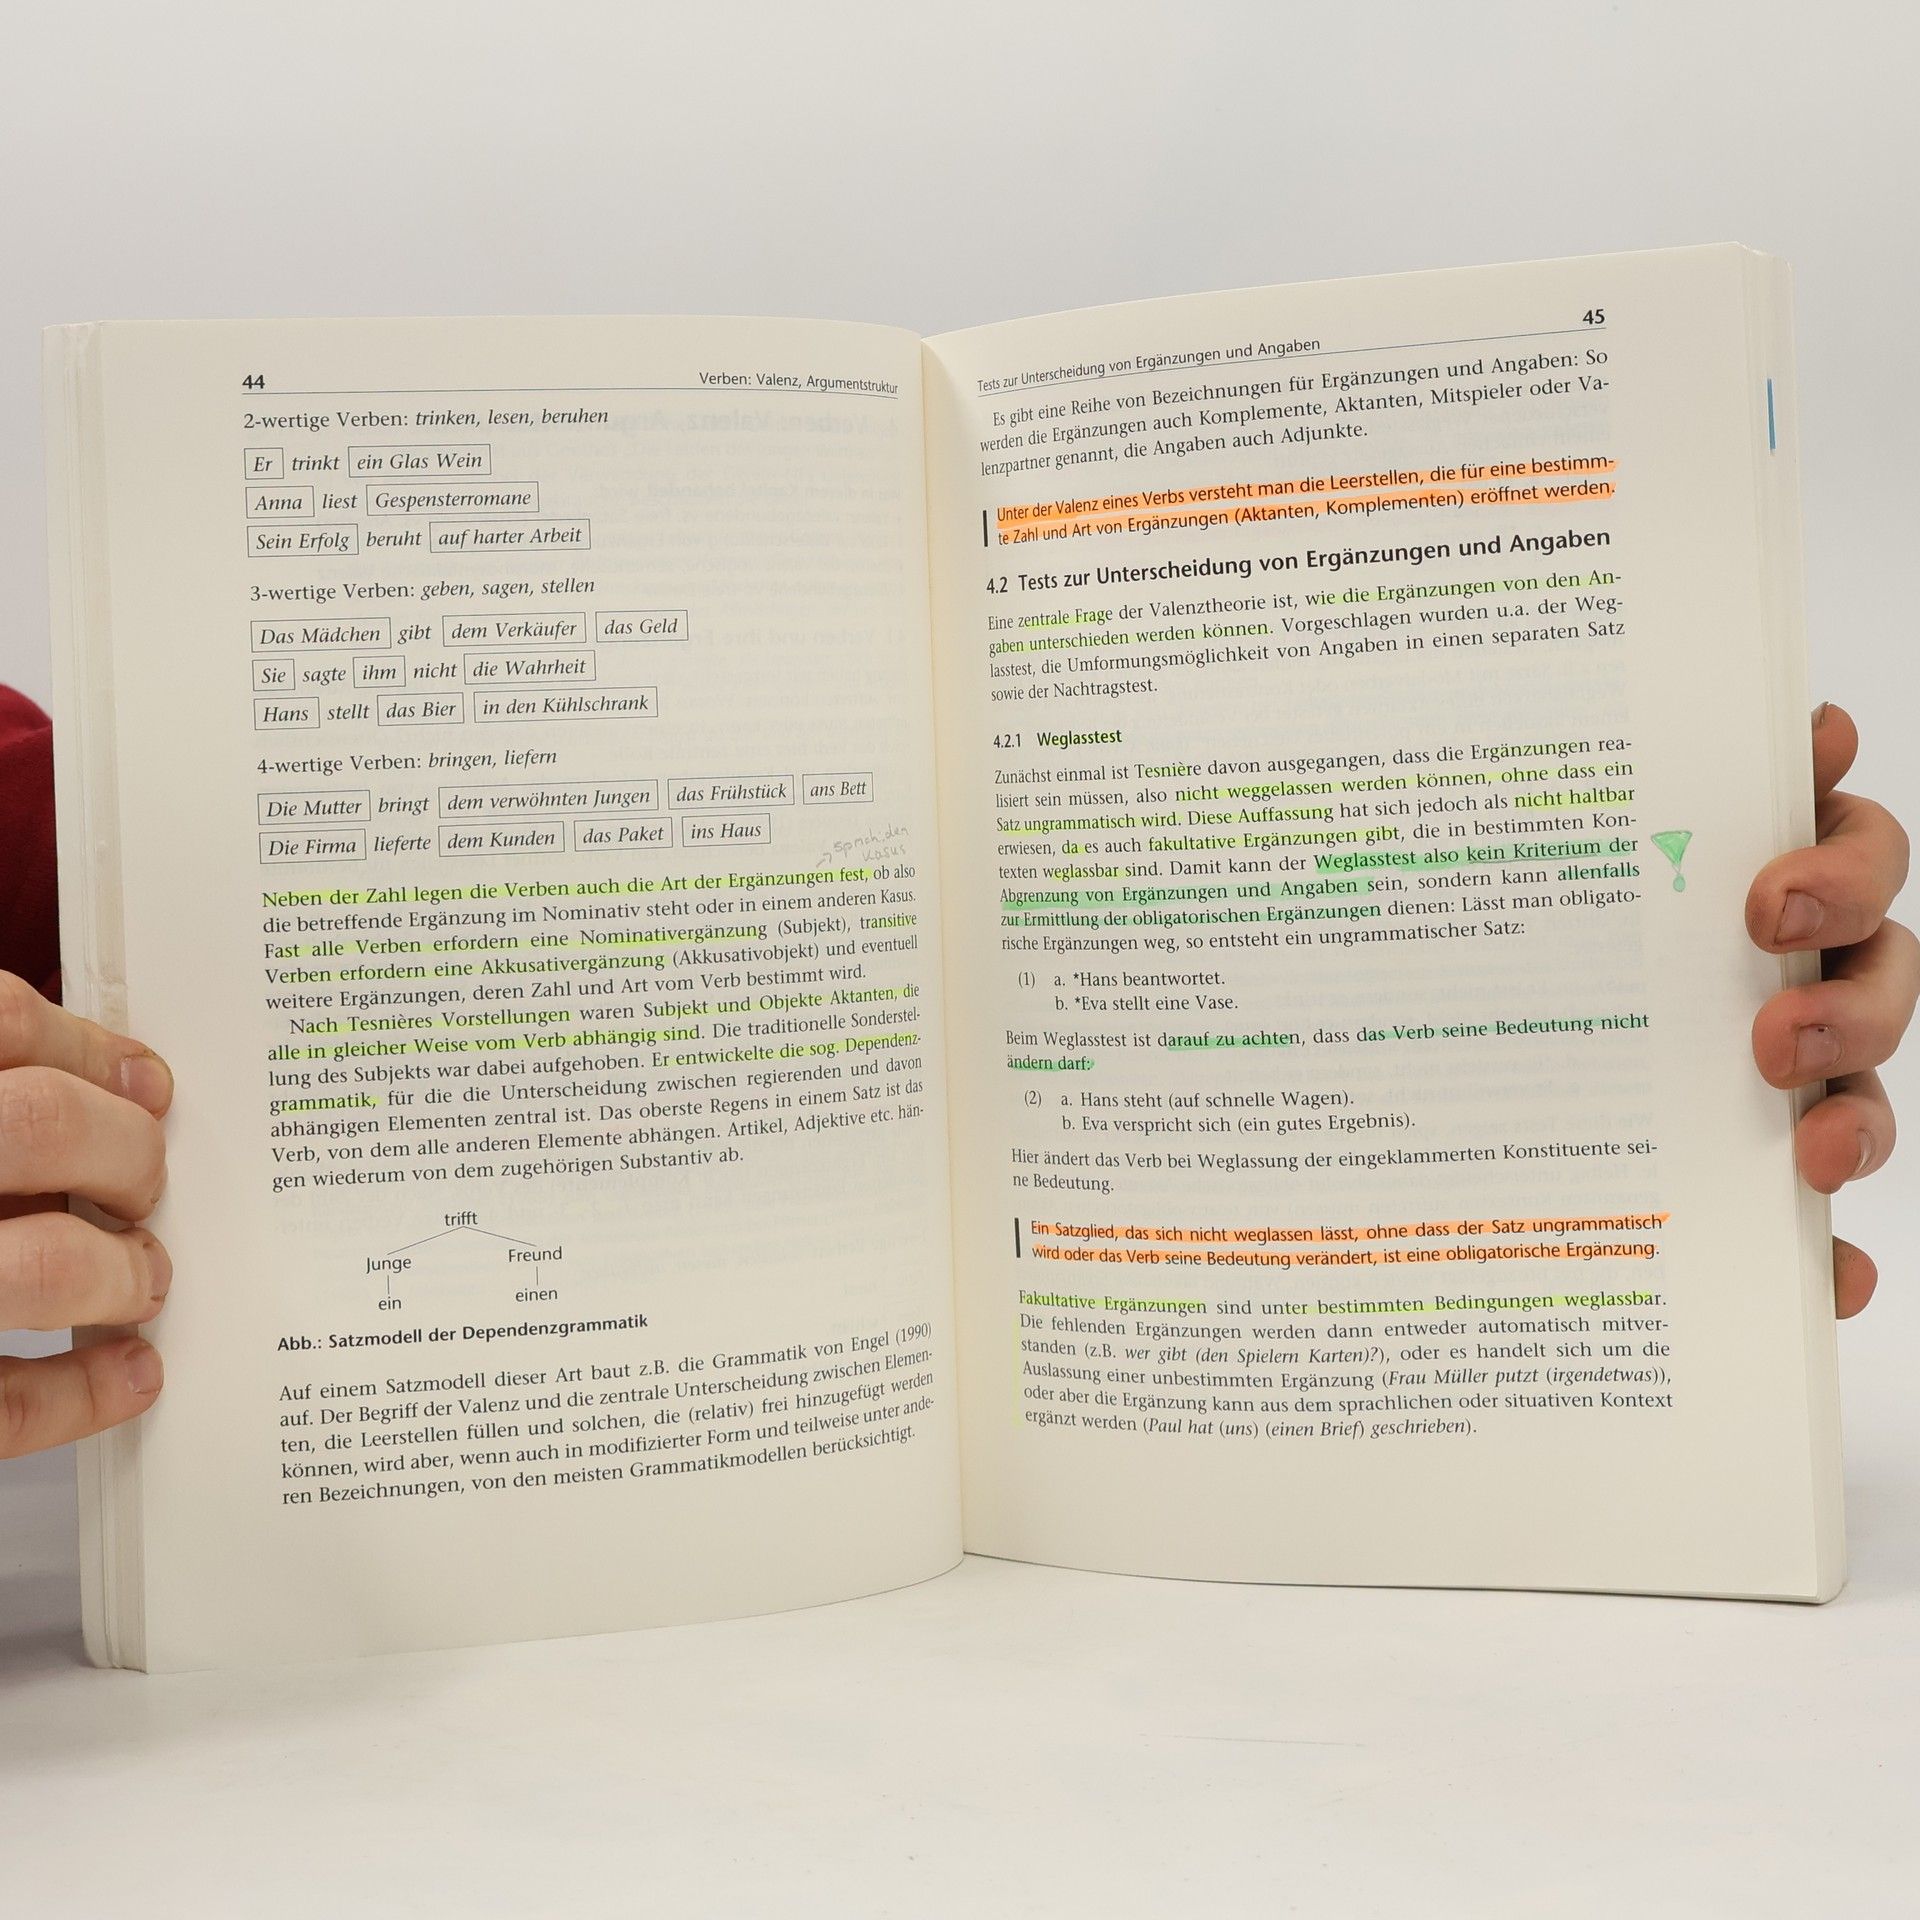 44
Verben: Valenz, Argumentstruktur
2-wertige Verben: trinken, lesen, beruhen
Er trinkt ein Glas Wein
Anna liest Gespensterromane
Sein Erfolg beruht auf harter Arbeit
3-wertige Verben: geben, sagen, stellen
Das Mädchen gibt dem Verkäufer das Geld
Sie sagte ihm nicht die Wahrheit
Hans stellt das Bier in den Kühlschrank
4-wertige Verben: bringen, liefern
Die Mutter bringt dem verwöhnten Jungen das Frühstück ans Bett
Die Firma lieferte dem Kunden das Paket ins Haus
den
Kasus
Neben der Zahl legen die Verben auch die Art der Ergänzungen fest, ob also
die betreffende Ergänzung im Nominativ steht oder in einem anderen Kasus.
Fast alle Verben erfordern eine Nominativergänzung (Subjekt), transitive
Verben erfordern eine Akkusativergänzung (Akkusativobjekt) und eventuell
weitere Ergänzungen, deren Zahl und Art vom Verb bestimmt wird.
Nach Tesnières Vorstellungen waren Subjekt und Objekte Aktanten, die
alle in gleicher Weise vom Verb abhängig sind. Die traditionelle Sonderstel-
lung des Subjekts war dabei aufgehoben. Er entwickelte die sog. Dependenz-
grammatik, für die die Unterscheidung zwischen regierenden und davon
abhängigen Elementen zentral ist. Das oberste Regens in einem Satz ist das
Verb, von dem alle anderen Elemente abhängen. Artikel, Adjektive etc. hän-
gen wiederum von dem zugehörigen Substantiv ab.
trifft
Junge Freund
ein einen
Abb.: Satzmodell der Dependenzgrammatik
Auf einem Satzmodell dieser Art baut z.B. die Grammatik von Engel (1990)
auf. Der Begriff der Valenz und die zentrale Unterscheidung zwischen Elemen-
ten, die Leerstellen füllen und solchen, die (relativ) frei hinzugefügt werden
können, wird aber, wenn auch in modifizierter Form und teilweise unter ande-
ren Bezeichnungen, von den meisten Grammatikmodellen berücksichtigt.
45
Tests zur Unterscheidung von Ergänzungen und Angaben
Es gibt eine Reihe von Bezeichnungen für Ergänzungen und Angaben: So
werden die Ergänzungen auch Komplemente, Aktanten, Mitspieler oder Va-
lenzpartner genannt, die Angaben auch Adjunkte.
Unter der Valenz eines Verbs versteht man die Leerstellen, die für eine bestimm-
te Zahl und Art von Ergänzungen (Aktanten, Komplementen) eröffnet werden.
4.2 Tests zur Unterscheidung von Ergänzungen und Angaben
Eine zentrale Frage der Valenztheorie ist, wie die Ergänzungen von den An-
gaben unterschieden werden können. Vorgeschlagen wurden u.a. der Weg-
lasstest, die Umformungsmöglichkeit von Angaben in einen separaten Satz
sowie der Nachtragstest.
4.2.1 Weglasstest
Zunächst einmal ist Tesnière davon ausgegangen, dass die Ergänzungen rea-
lisiert sein müssen, also nicht weggelassen werden können, ohne dass ein
Satz ungrammatisch wird. Diese Auffassung hat sich jedoch als nicht haltbar
erwiesen, da es auch fakultative Ergänzungen gibt, die in bestimmten Kon-
texten weglassbar sind. Damit kann der Weglasstest also kein Kriterium der
Abgrenzung von Ergänzungen und Angaben sein, sondern kann allenfalls
zur Ermittlung der obligatorischen Ergänzungen dienen: Lässt man obligato-
rische Ergänzungen weg, so entsteht ein ungrammatischer Satz:
(1) a. *Hans beantwortet.
b. *Eva stellt eine Vase.
Beim Weglasstest ist darauf zu achten, dass das Verb seine Bedeutung nicht
ändern darf:
(2) a. Hans steht (auf schnelle Wagen).
b. Eva verspricht sich (ein gutes Ergebnis).
Hier ändert das Verb bei Weglassung der eingeklammerten Konstituente sei-
ne Bedeutung.
Ein Satzglied, das sich nicht weglassen lässt, ohne dass der Satz ungrammatisch
wird oder das Verb seine Bedeutung verändert, ist eine obligatorische Ergänzung.
Fakultative Ergänzungen sind unter bestimmten Bedingungen weglassbar.
Die fehlenden Ergänzungen werden dann entweder automatisch mitver-
standen (z.B. wer gibt (den Spielern Karten)?), oder es handelt sich um die
Auslassung einer unbestimmten Ergänzung (Frau Müller putzt (irgendetwas)),
oder aber die Ergänzung kann aus dem sprachlichen oder situativen Kontext
ergänzt werden (Paul hat (uns) (einen Brief) geschrieben).